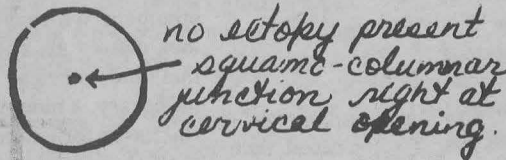 no ectopy present
squamo-columnar
junction right at
cervical opening.